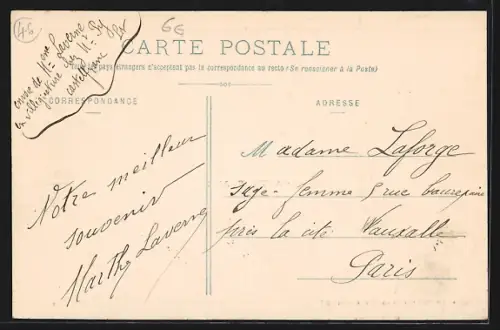 46
6G
envoi de Mme Laverne
en villégiature chez Mr Py
castelfranc
CARTE POSTALE
pays étrangers n'acceptent pas la correspondance au recto (Se renseigner à la Poste)
CORRESPONDANCE
ADRESSE
Notre meilleur
souvenir
Marthe Laverne
Madame Laforge
sage-femme 5 rue beaurepaire
près la cité Vauxalle
Paris